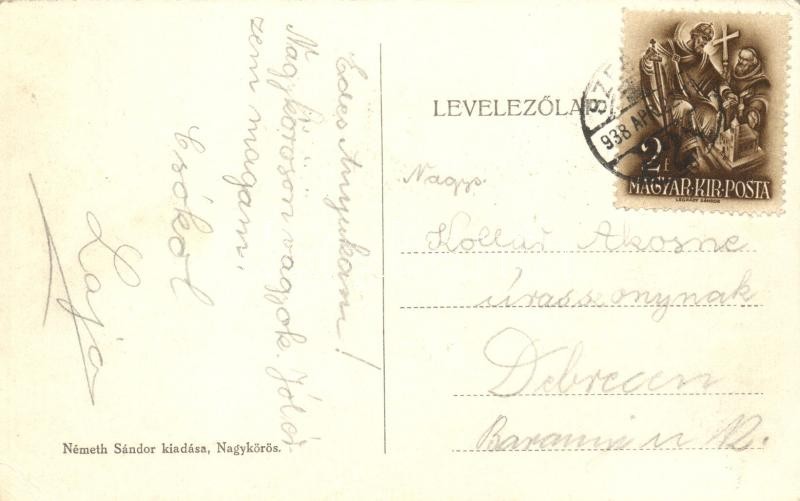 Édes Anyukám!
Nagykőrösön vagyok. Jól ér
zem magam.
Csókol
Laja
Németh Sándor kiadása, Nagykőrös.
LEVELEZŐLA
938 APR
2f
MAGYAR·KIR·POSTA
LÉGRÁDY SÁNDOR
Nagys.
Kollár Ákosné
úrasszonynak
Debrecen
u 12.